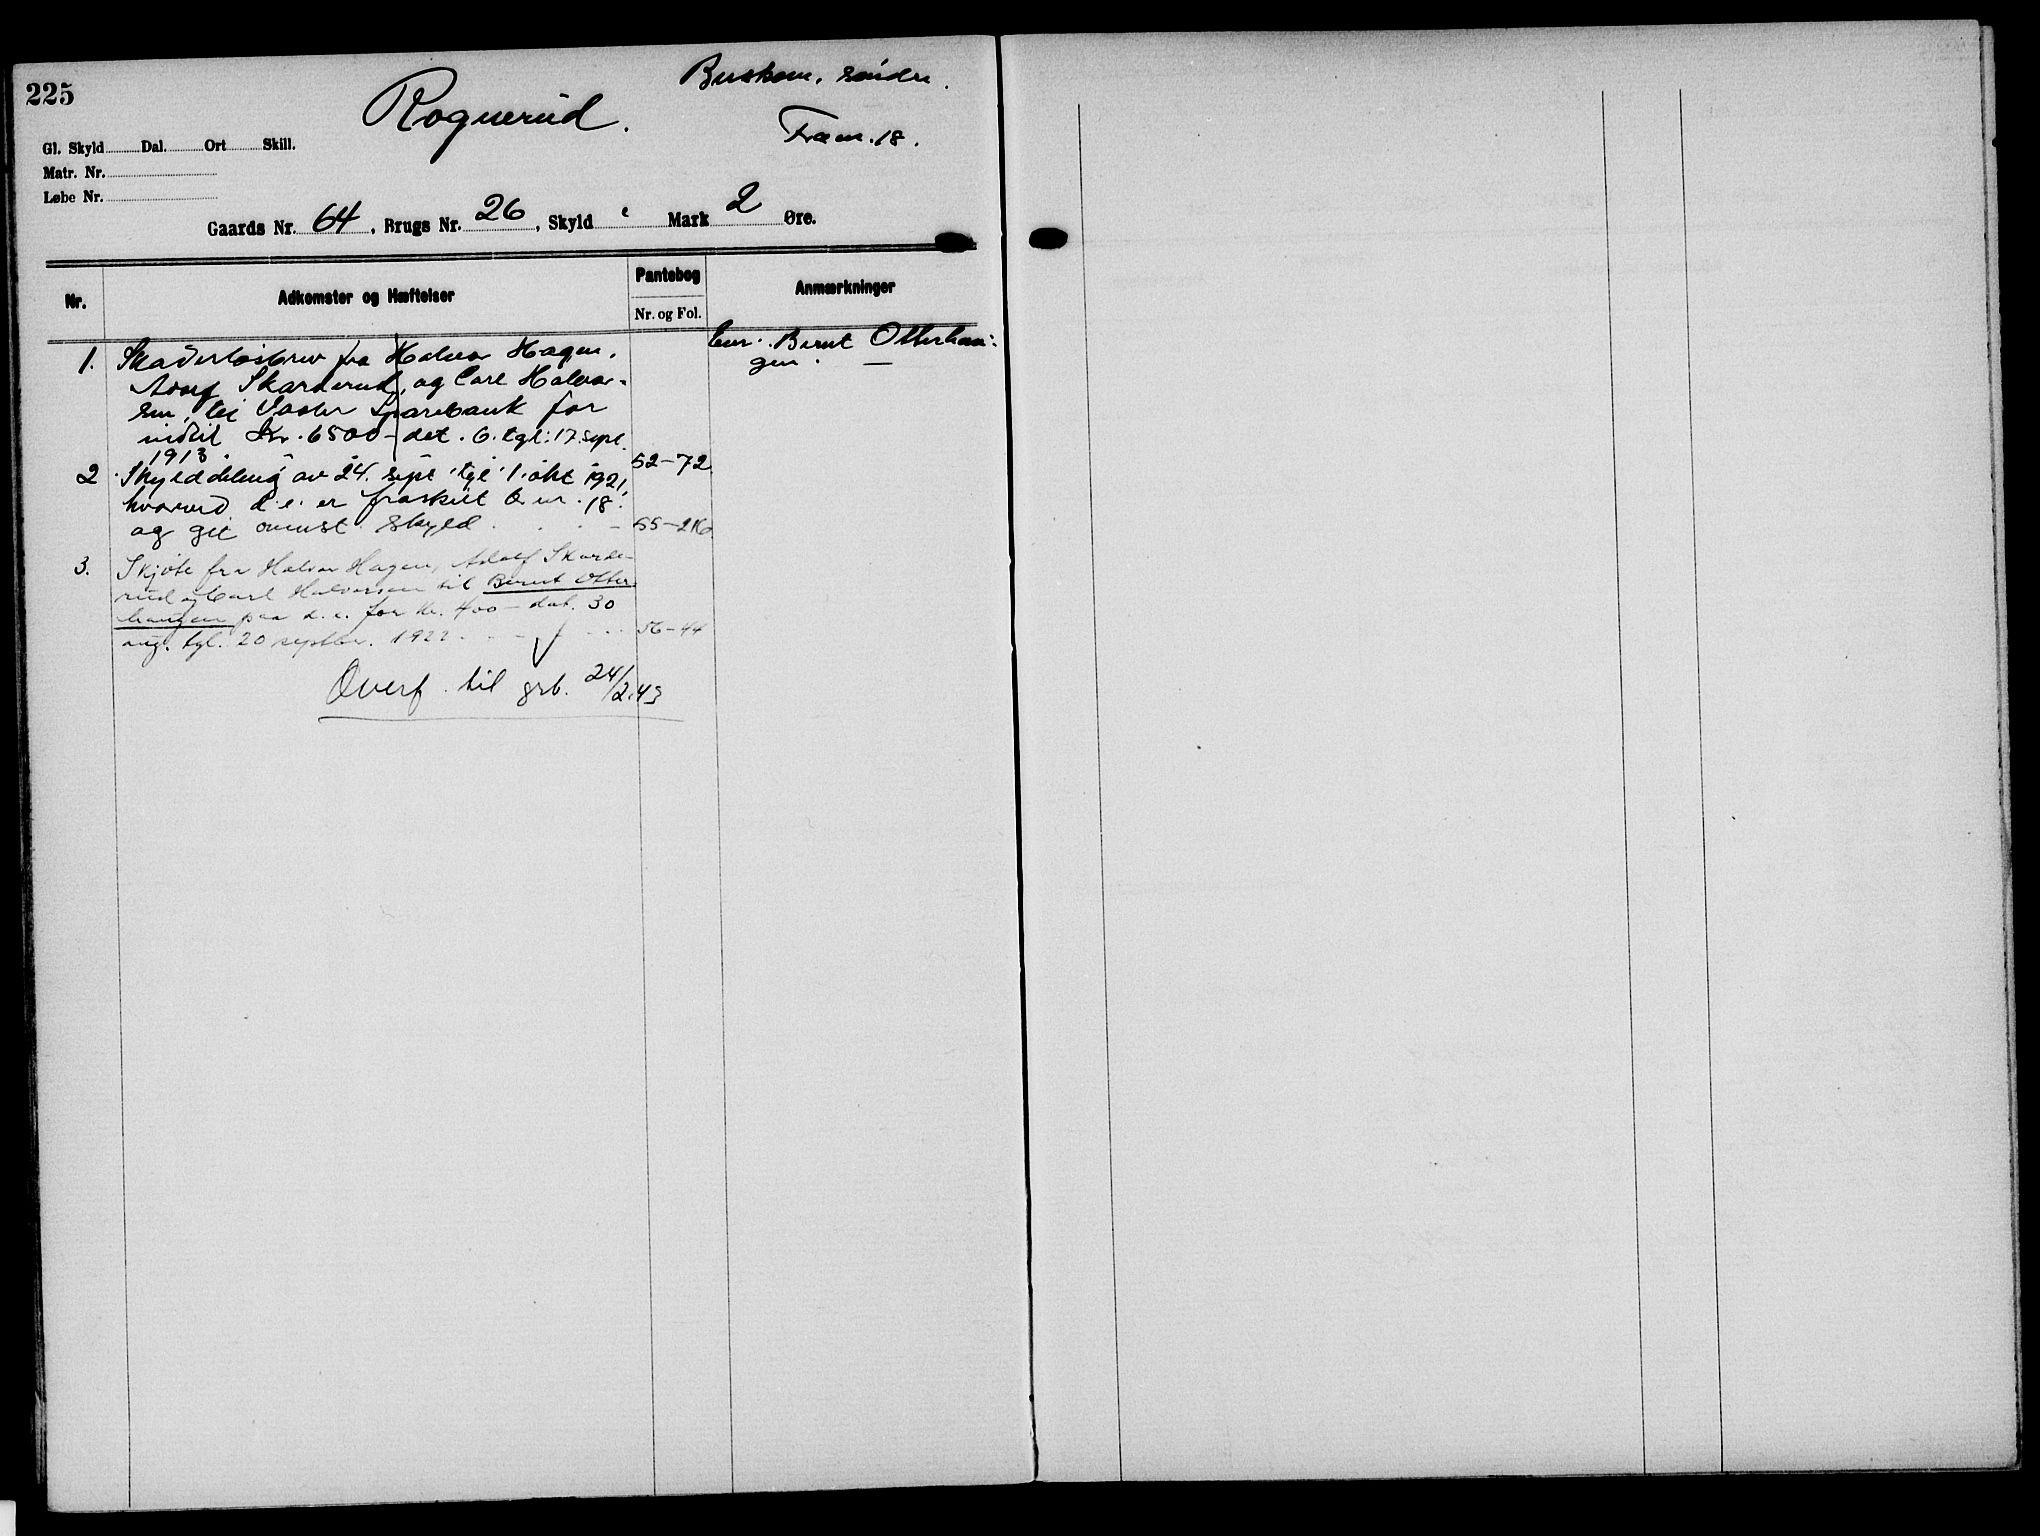 225
Rognerud.
Buskom. søndre.
Fra en. 18.
Gl. Skyld Dal. Ort Skill.
Matr. Nr.
Løbe Nr.
Gaards Nr. 64, Brugs Nr. 26, Skyld Mark 2 Øre.
Nr. Adkomster og Hæftelser Pantebog Anmærkninger
Nr. og Fol.
1. Skadesløsbrev fra Halvor Hagen,
Adolf Skarderud, og Carl Halvor-
sen, til Vaaler Sparebank for
indtil Kr. 6500 - dat. 6. tgl: 17. sept.
1913. 52-72
Eier: Bernt Otterhau-
gen. —
2 Skylddeling av 24. sept tgl 1. okt 1921,
hvorved d.e. er fraskilt b.nr. 18.
og git ovenst. skyld 55-216
3. Skjøte fra Halvor Hagen, Adolf Skarde-
rud og Carl Halvorsen til Bernt Otter
haugen paa d.e. for kr. 400 - dat. 30
aug. tgl. 20 septbr. 1922 56-44
Overf. til grb. 24/2.43